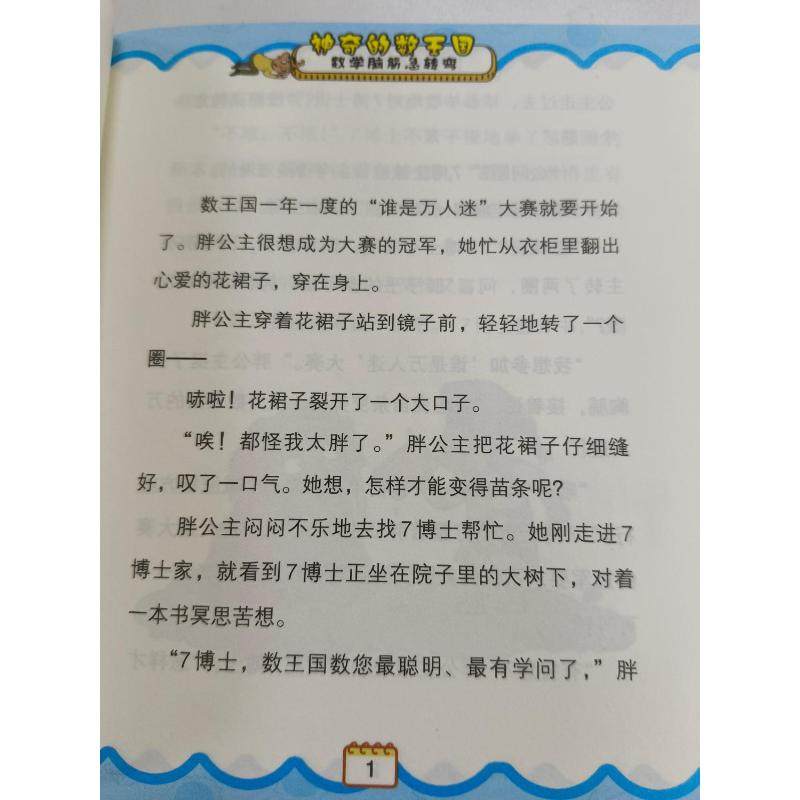 神奇的数王国
数学脑筋急转弯
数王国一年一度的“谁是万人迷”大赛就要开始
了。胖公主很想成为大赛的冠军，她忙从衣柜里翻出
心爱的花裙子，穿在身上。
胖公主穿着花裙子站到镜子前，轻轻地转了一个
圈——
哧啦！花裙子裂开了一个大口子。
“唉！都怪我太胖了。”胖公主把花裙子仔细缝
好，叹了一口气。她想，怎样才能变得苗条呢？
胖公主闷闷不乐地去找7博士帮忙。她刚走进7
博士家，就看到7博士正坐在院子里的大树下，对着
一本书冥思苦想。
“7博士，数王国数您最聪明、最有学问了，”胖
1